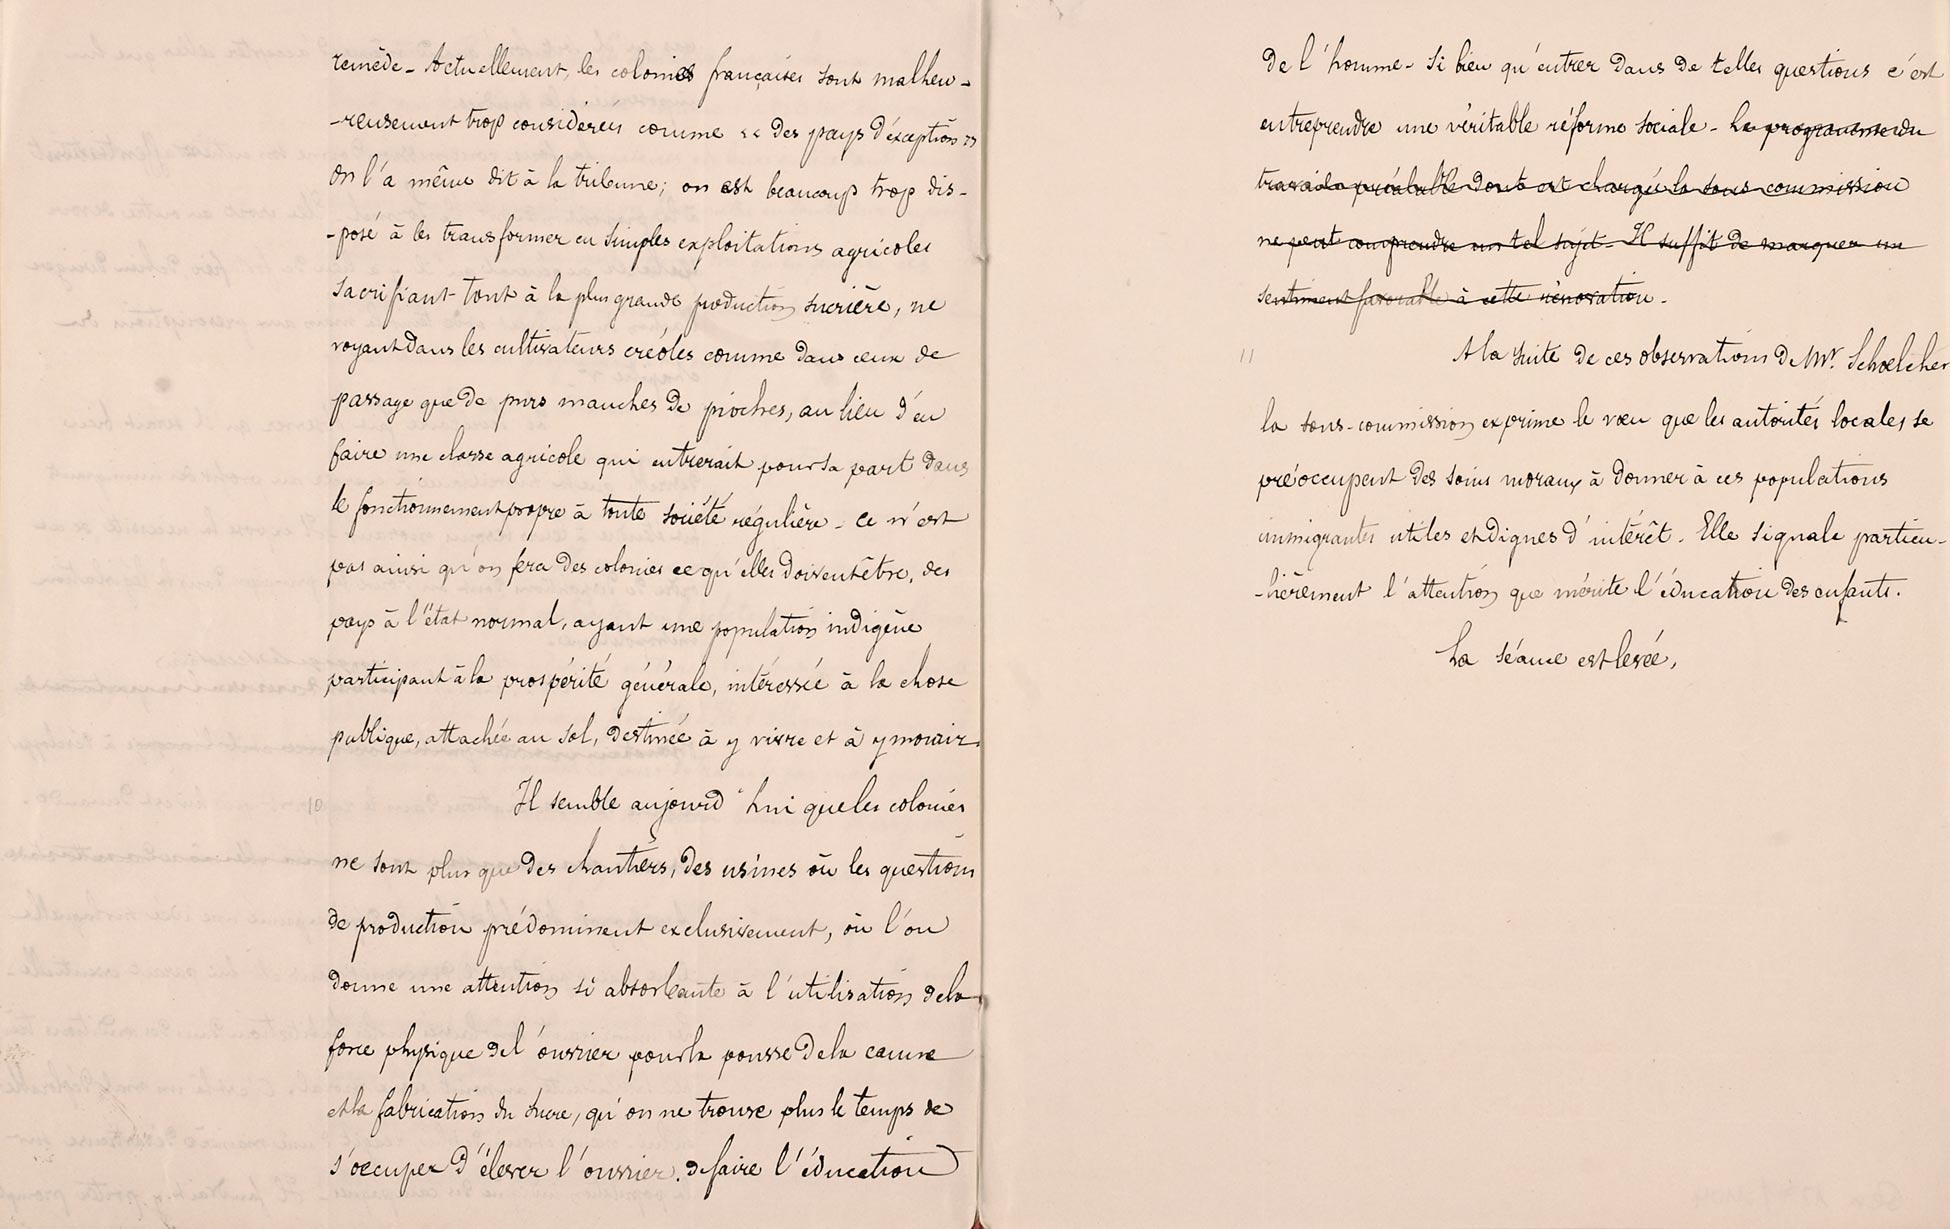 remède - Actuellement, les colonies françaises sont malheu-
-reusement trop considérées comme << des pays d'éxception >>
On l'a même dit à la tribune; on est beaucoup trop dis-
-posé à les transformer en simples exploitations agricoles
sacrifiant tout à la plus grande production sucrière, ne
voyant dans les cultivateurs créoles comme dans ceux de
passage que de purs manches de pioches, au lieu d'en
faire une classe agricole qui entrerait pour sa part dans
le fonctionnement propre à toute société régulière - Ce n'est
pas ainsi qu'on fera des colonies ce qu'elles doivent être, des
pays à l'état normal, ayant une population indigène
participant à la prospérité générale, intéressée à la chose
publique, attachée au sol, destinée à y vivre et à y mourir.
10 Il semble aujourd'hui que les colonies
ne sont plus que des chantiers, des usines où les questions
de production prédominent exclusivement, où l'on
donne une attention si absorbante à l'utilisation de la
force physique de l'ouvrier pour la pousse de la canne
et la fabrication du sucre, qu'on ne trouve plus le temps de
s'occuper d'élever l'ouvrier. de faire l'éducation
de l'homme - Si bien qu'entrer dans de telles questions c'est
entreprendre une véritable réforme sociale - Le programme du
travail préalable dont est chargée la sous commission
ne peut comprendre un tel sujet - Il suffit de marquer un
sentiment favorable à cette rénovation.
11 A la suite de ces observations de Mr. Schoelcher
la sous-commission exprime le voeu que les autorités locales se
préoccupent des soins moraux à donner à ces populations
immigrantes utiles et dignes d'intérêt. Elle signale particu-
-lièrement l'attention que mérite l'éducation des enfants.
La séance est levée,